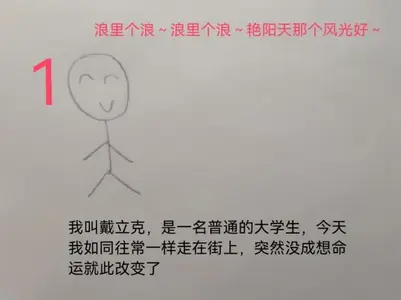 浪里个浪～浪里个浪～艳阳天那个风光好～
1
我叫戴立克，是一名普通的大学生，今天
我如同往常一样走在街上，突然没成想命
运就此改变了